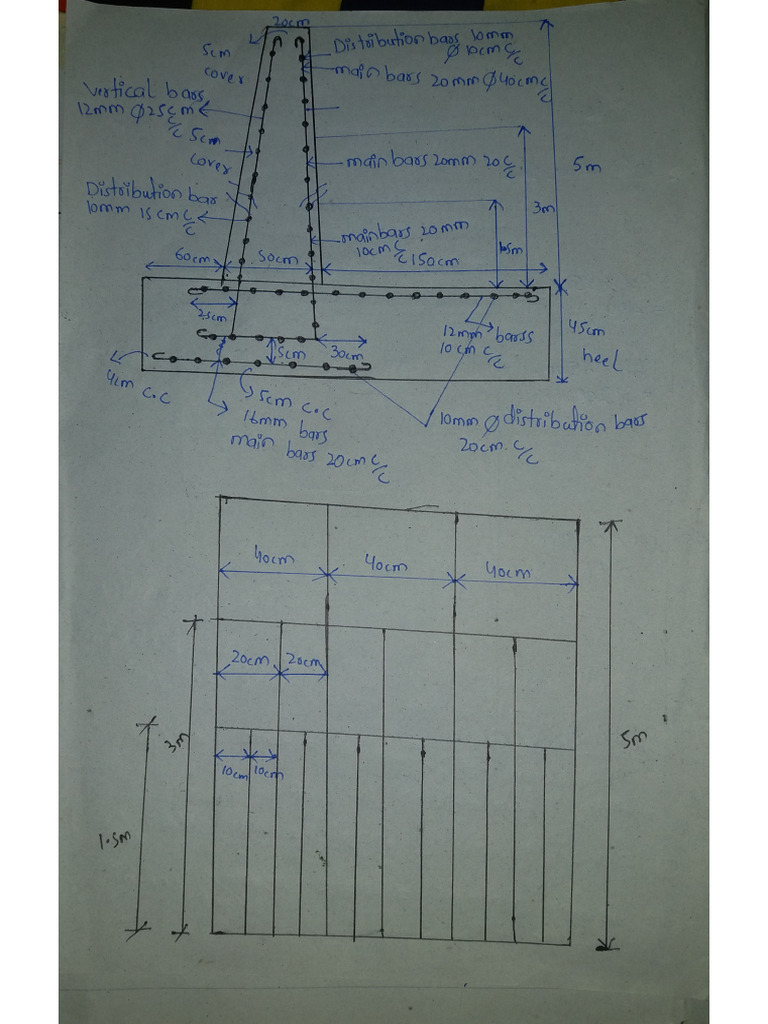 20cm
5cm
cover
Distribution bars 10mm
Ø 10cm C/C
main bars 20mm Ø 40cm C/C
Vertical bars
12mm Ø 25cm C/C
5cm
cover
main bars 20mm 20 C/C
5m
3m
Distribution bar
10mm 15cm C/C
main bars 20mm
10cm C/C
1.5m
60cm
50cm
150cm
25cm
12mm barss
10cm C/C
45cm
heel
5cm
30cm
4cm C.C
5cm C.C
16mm bars
main bars 20cm C/C
10mm Ø distribution bars
20cm C/C
40cm
40cm
40cm
20cm
20cm
3m
5m
10cm
10cm
1.5m